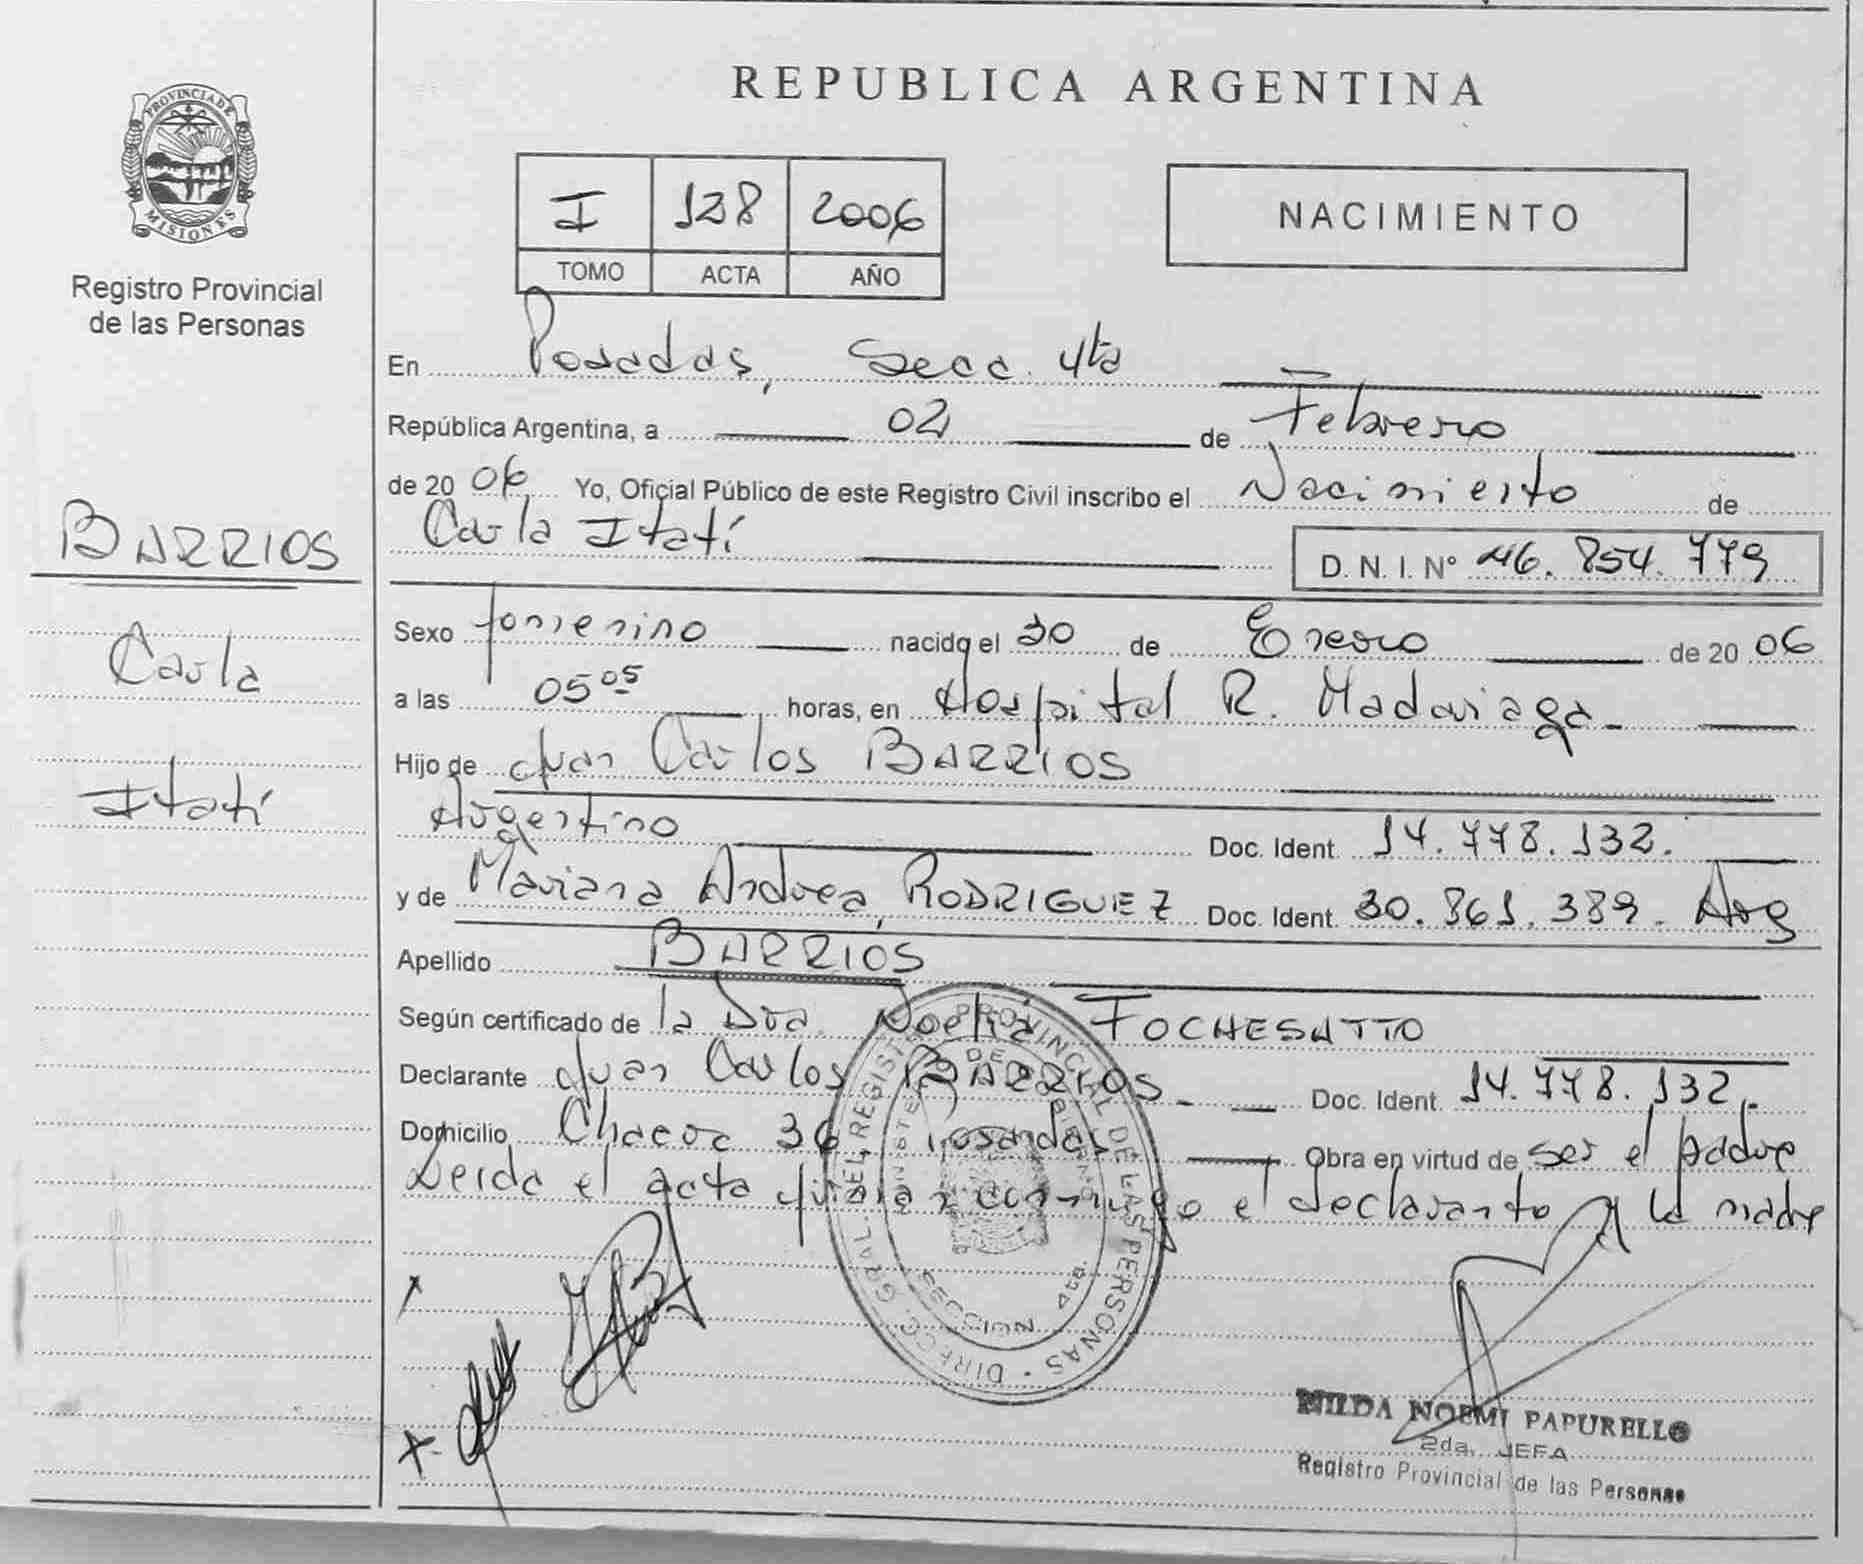 PROVINCIA DE
MISIONES
Registro Provincial
de las Personas
BARRIOS
Carla
Itatí
REPUBLICA ARGENTINA
I 128 2006
TOMO ACTA AÑO
NACIMIENTO
En Posadas, Secc. 4ta
República Argentina, a 02 de Febrero
de 20 06 Yo, Oficial Público de este Registro Civil inscribo el Nacimiento de
Carla Itatí D. N. I. Nº 46.854.779
Sexo femenino nacido el 30 de Enero de 20 06
a las 05 05 horas, en Hospital R. Madariaga
Hijo de Juan Carlos BARRIOS
Argentino Doc. Ident. 14.778.132.
y de Mariana Andrea RODRIGUEZ Doc. Ident. 30.861.389. Arg
Apellido BARRIOS
Según certificado de la Dra. Noelia FOCHESATTO
Declarante Juan Carlos BARRIOS Doc. Ident. 14.778.132.
Domicilio Chacra 36 Posadas Obra en virtud de ser el padre
Leida el acta firman conmigo el declarante y la madre
DIRECC. GRAL. DEL REGISTRO PROVINCIAL DE LAS PERSONAS
MINISTERIO DE GOBIERNO
SECCION 4ta.
NILDA NOEMI PAPURELLO
2da. JEFA
Registro Provincial de las Personas